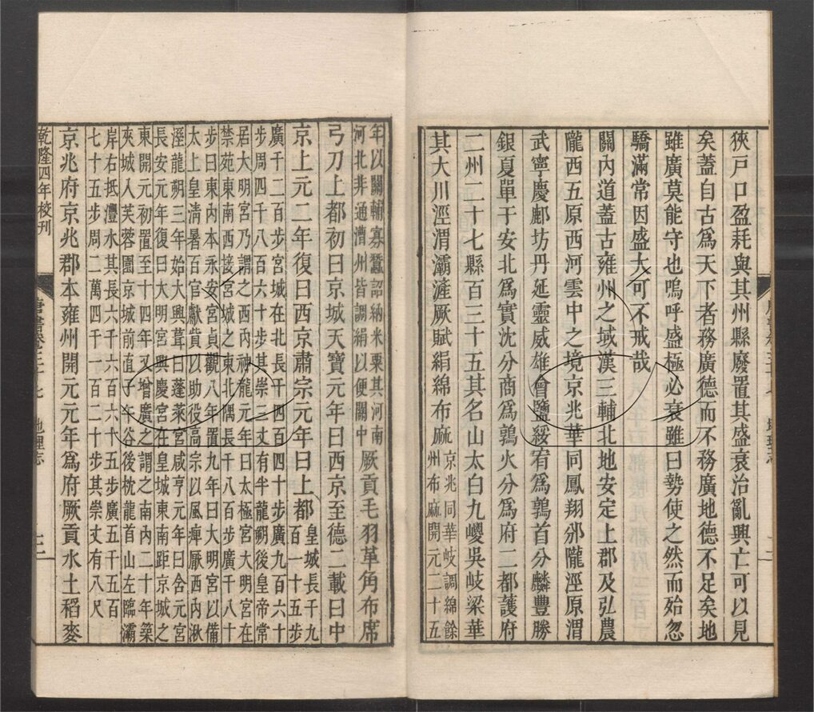 狹戸口盈耗與其州縣廢置其盛衰治亂興亡可以見
矣蓋自古爲天下者務廣德而不務廣地德不足矣地
雖廣莫能守也嗚呼盛極必衰雖曰勢使之然而殆忽
驕滿常因盛大可不戒哉
關內道蓋古雍州之域漢三輔北地安定上郡及弘農
隴西五原西河雲中之境京兆華同鳳翔邠隴涇原渭
武寧慶鄜坊丹延靈威雄會鹽綏宥爲鶉首分麟豐勝
銀夏單于安北爲實沈分商爲鶉火分爲府二都護府
二州二十七縣百三十五其名山太白九嵕吳岐梁華
其大川涇渭灞滻厥賦絹綿布麻
京兆同華岐調綿餘
州布麻開元二十五
年以關輔寡蠶詔納米粟其河南
河北非通漕州皆調絹以便關中
厥貢毛羽革角布席
弓刀上都初曰京城天寶元年曰西京至德二載曰中
京上元二年復曰西京肅宗元年曰上都
皇城長千九
百一十五步
廣千二百步宮城在北長千四百四十步廣九百六十
步周四千八百六十步其崇三丈有半龍朔後皇帝常
居大明宮乃謂之西內神龍元年曰太極宮大明宮在
禁苑東南西接宮城之東北隅長千八百步廣千八十
步曰東內本永安宮貞觀八年置九年曰大明宮以備
太上皇清暑百官獻貲以助役高宗以風痺厭西內湫
溼龍朔三年始大興葺曰蓬萊宮咸亨元年曰含元宮
長安元年復曰大明宮興慶宮在皇城東南距京城之
東開元初置至十四年又增廣之謂之南內二十年築
夾城入芙蓉園京城前直子午谷後枕龍首山左臨灞
岸右抵灃水其長六千六百六十五步廣五千五百
七十五步周二萬四千一百二十步其崇丈有八尺
京兆府京兆郡本雍州開元元年爲府厥貢水土稻麥
乾隆四年校刊
唐書卷三十七
地理志
二